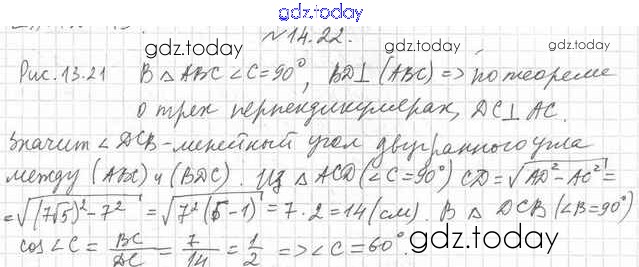 gdz.today
№14.22.
gdz.today gdz.today
Рис. 13.21 В △ABC ∠C=90°, BD⊥(ABC) => по теореме
о трех перпендикулярах, DC⊥AC.
Значит ∠DCB - линейный угол двугранного угла
между (ABC) и (BDC). Из △ACD (∠C=90°) CD=√(AD²-AC²)=
=√((7√5)²-7²) = √(7²(5-1)) = 7·2=14(см). В △DCB (∠B=90°)
cos∠C = BC/DC = 7/14 = 1/2 => ∠C=60°.
gdz.today